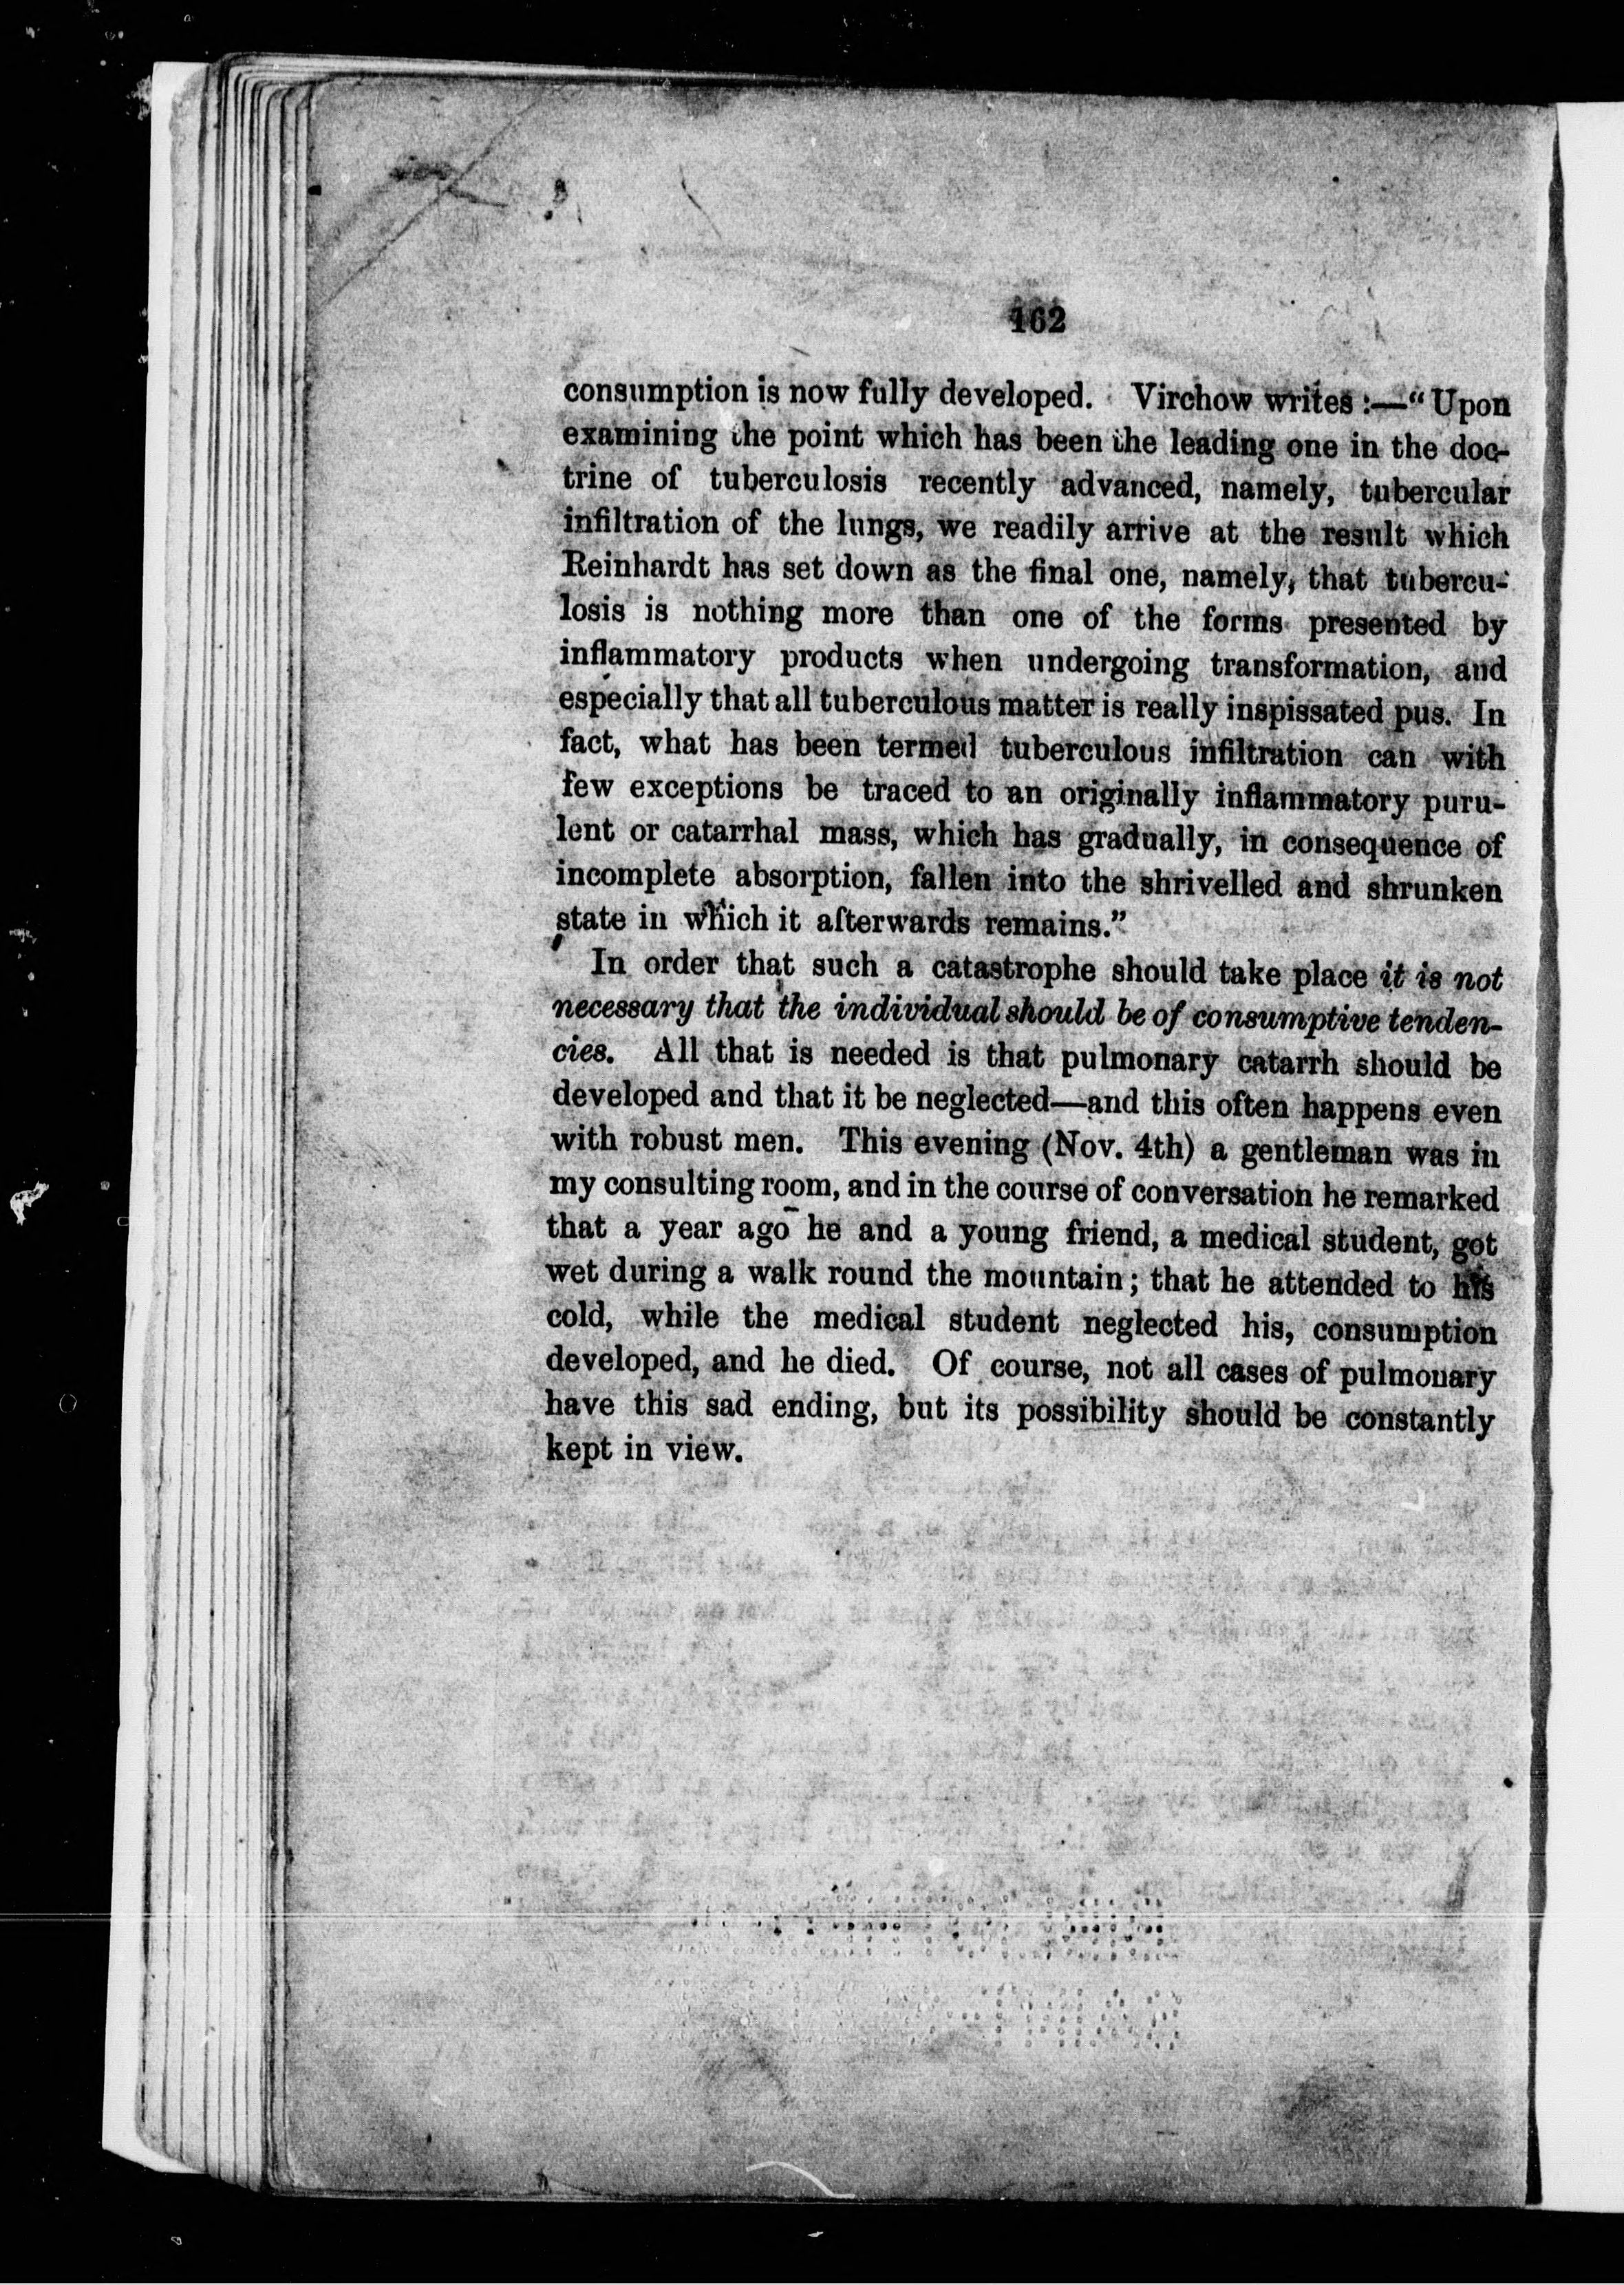 162
consumption is now fully developed. Virchow writes:—“Upon
examining the point which has been the leading one in the doc-
trine of tuberculosis recently advanced, namely, tubercular
infiltration of the lungs, we readily arrive at the result which
Reinhardt has set down as the final one, namely, that tubercu-
losis is nothing more than one of the forms presented by
inflammatory products when undergoing transformation, and
especially that all tuberculous matter is really inspissated pus. In
fact, what has been termed tuberculous infiltration can with
few exceptions be traced to an originally inflammatory puru-
lent or catarrhal mass, which has gradually, in consequence of
incomplete absorption, fallen into the shrivelled and shrunken
state in which it afterwards remains.”
In order that such a catastrophe should take place it is not
necessary that the individual should be of consumptive tenden-
cies. All that is needed is that pulmonary catarrh should be
developed and that it be neglected—and this often happens even
with robust men. This evening (Nov. 4th) a gentleman was in
my consulting room, and in the course of conversation he remarked
that a year ago he and a young friend, a medical student, got
wet during a walk round the mountain; that he attended to his
cold, while the medical student neglected his, consumption
developed, and he died. Of course, not all cases of pulmonary
have this sad ending, but its possibility should be constantly
kept in view.